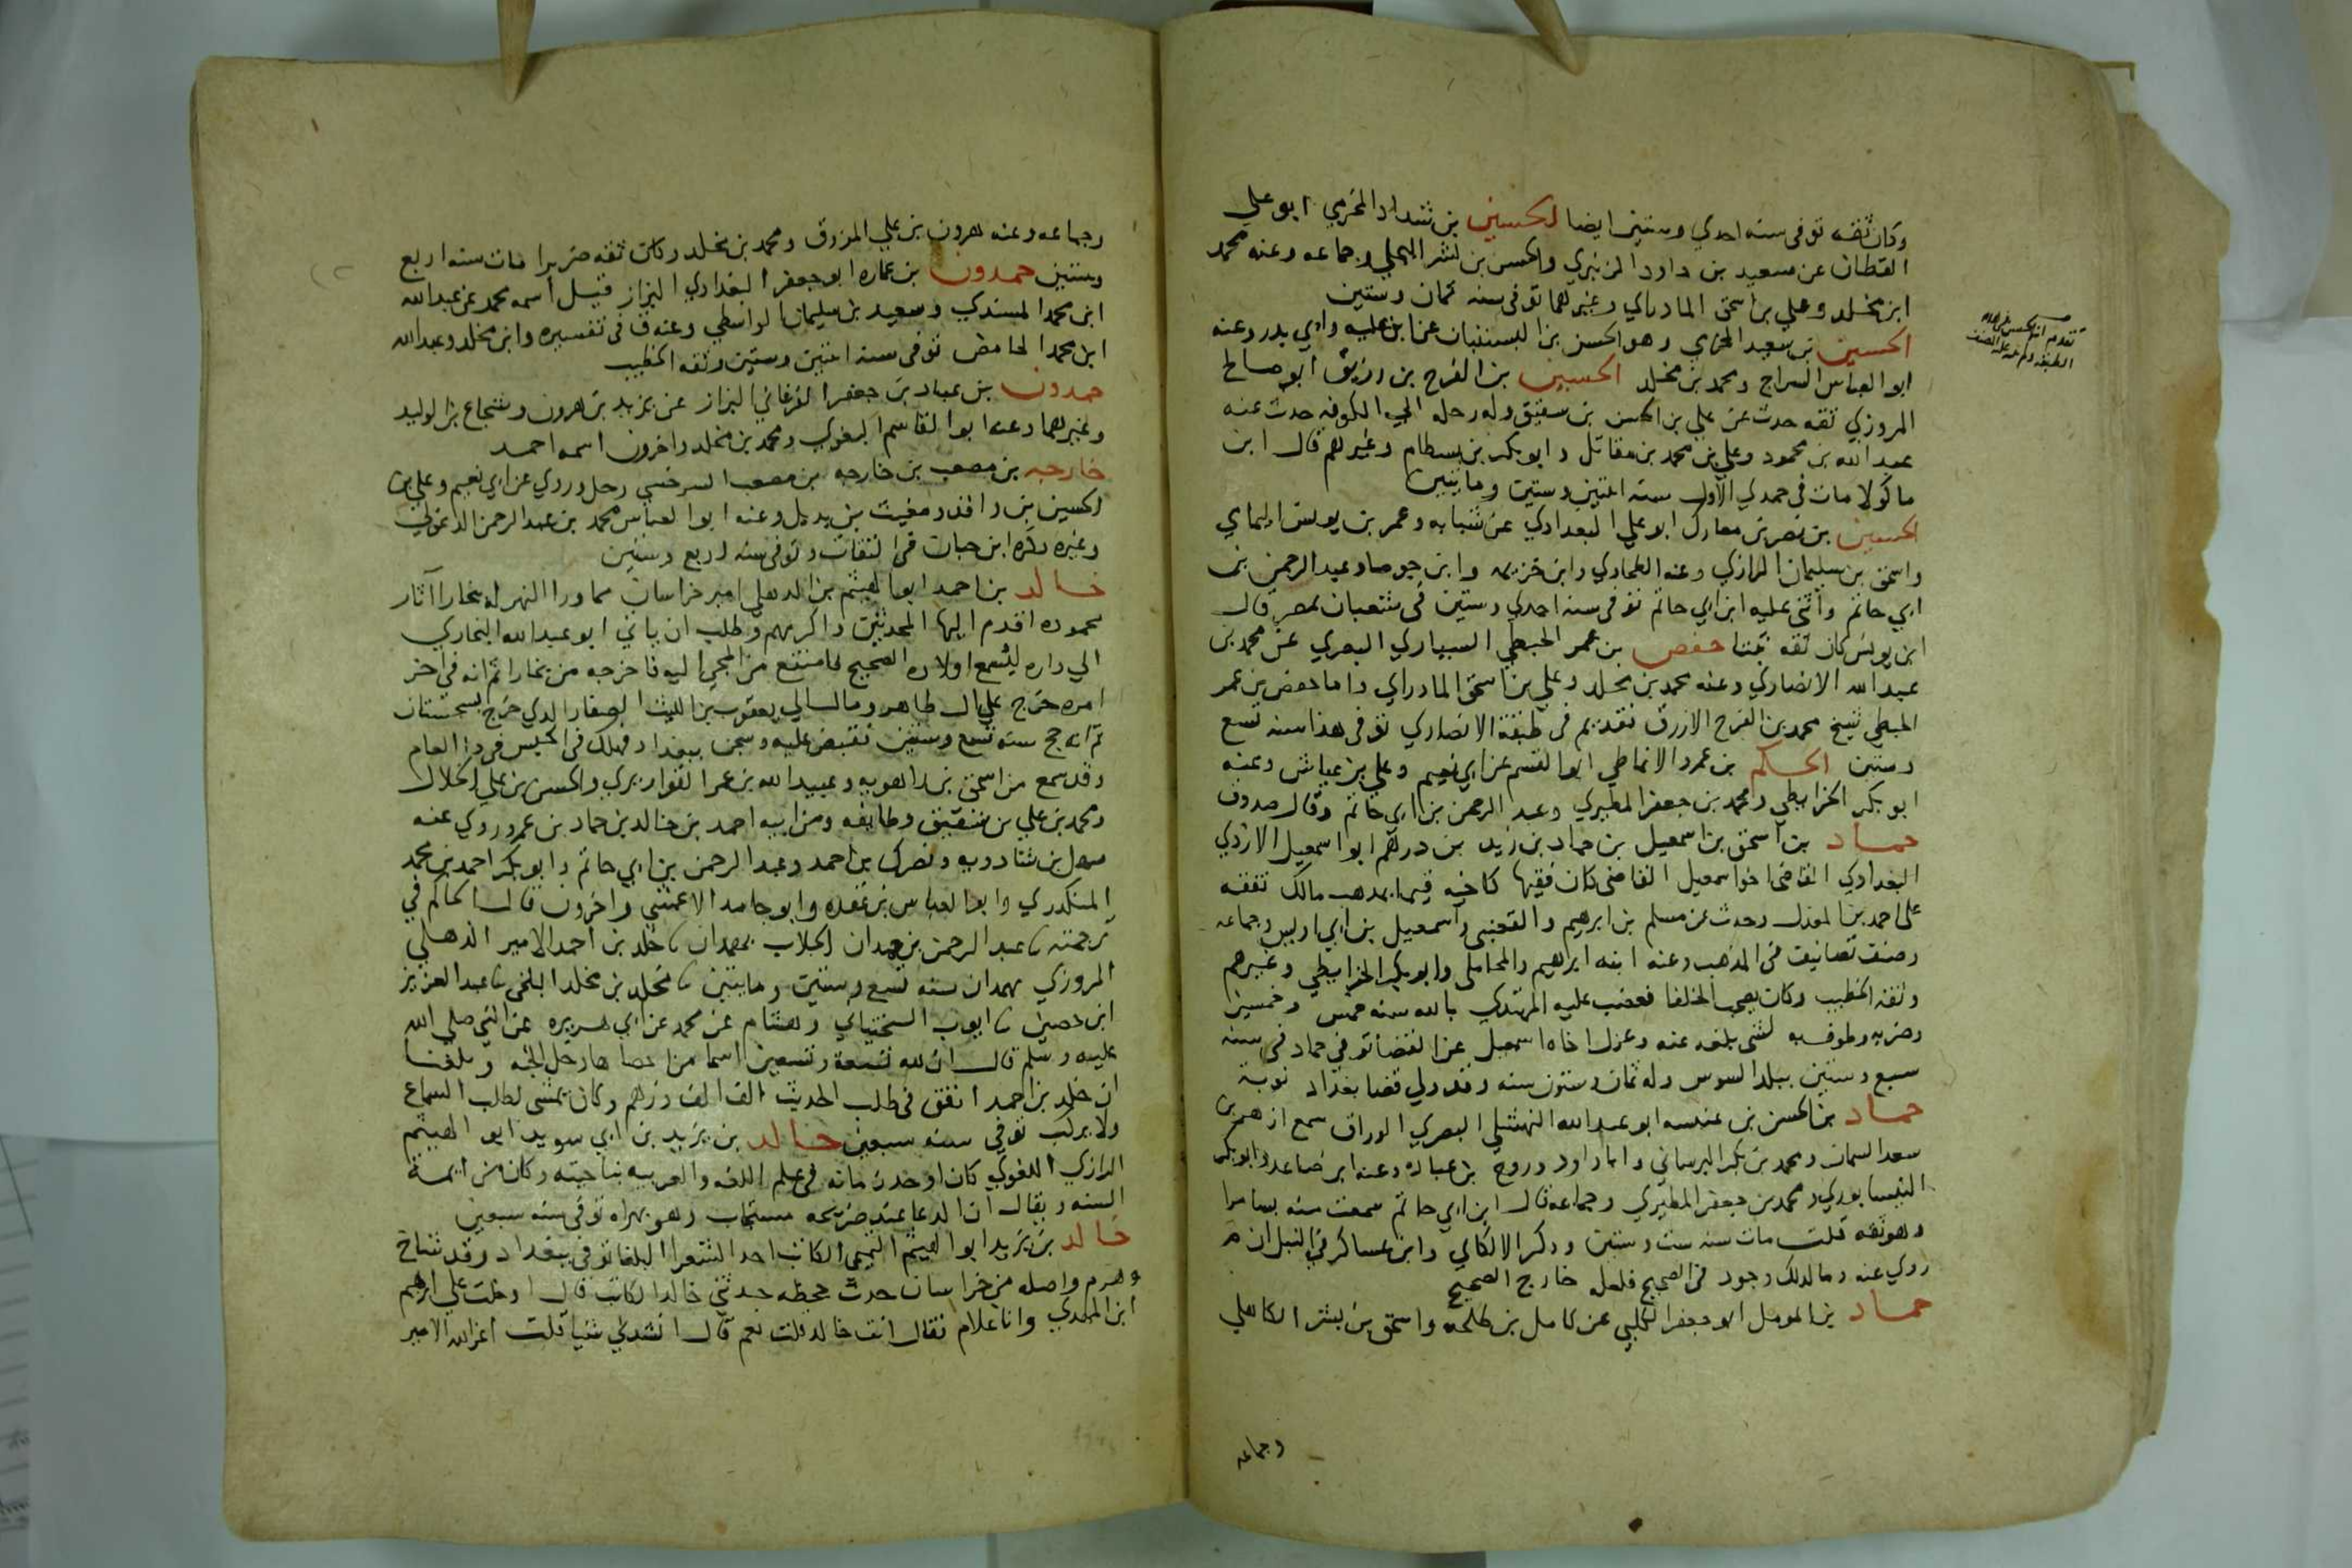 وكان ثقه توفى سنه احدي وستين ايضا الحسين بن شداد المخرمي ابو علي
القطان عن سعيد بن داود الزنبري والحسن بن بشر البجلي وجماعه وعنه محمد
ابن مخلد وعلي بن اسحق المادرائي وغيرهما توفى سنه ثمان وستين
الحسين بن سعيد المخرمي وهو الحسن بن البستنبان عن ابن عليه وابي بدر وعنه
ابو العباس السراج ومحمد بن مخلد الحسين بن الفرج بن رزيق ابو صالح
المروزي ثقه حدث عن علي بن الحسن بن سفيق وله رحله الي الكوفه حدث عنه
عبد الله بن محمود وعلي بن محمد بن مقاتل وابو بكر بن بسطام وغيرهم قال ابن
ماكولا مات فى جمدي الاول سنه اثنين وستين وماىتين
الحسين بن نصر بن معارك ابو علي البغدادي عن شبابه وعمر بن يونس اليماي
واسحق بن سليمان الرازي وعنه الطحاوي وابن خزيمه وابن جوصا وعبد الرحمن بن
ابي حاتم واثنى عليه ابن ابي حاتم توفى سنه احدي وستين فى شعبان بمصر قال
ابن يونس كان ثقه ثبتا حفص بن عمر الحبطي السياري البصري عن محمد بن
عبد الله الانصاري وعنه محمد بن مخلد وعلي بن اسحق المادراي واما حفص بن عمر
الحبطي شيخ محمد بن الفرج الازرق فقديم فى طبقة الانصاري توفى هذا سنه تسع
وستين الحكم بن عمرو الانماطي ابو القسم عن ابي نعيم وعلي بن عياش وعنه
ابو بكر الخرايطي ومحمد بن جعفر المطيري وعبد الرحمن بن ابي حاتم وقال صدوق
حماد بن اسحق بن اسمعيل بن حماد بن زيد بن درهم ابو اسمعيل الازدي
البغدادي القاضى اخو اسمعيل القاضى كان فقيها كاخيه قيما بمدهب مالك تفقه
على احمد بن المعذل وحدث عن مسلم بن ابرهيم والقعنبى واسمعيل بن ابي اويس وجماعه
وصنف تصانيف فى المذهب وعنه ابنه ابرهيم والمحاملى وابو بكر الخرايطي وغيرهم
وثقه الخطيب وكان يصحب الخلفا فغضب عليه المهتدي بالله سنه خمس وخمسين
وضربه وطوف به لشى بلغه عنه وعزل اخاه اسمعيل عن القضا توفى حماد فى سنه
سبع وستين ببلد السوس وله ثمان وستون سنه وقد ولي قضا بغداد نوبة
حماد بن الحسن بن عنبسه ابو عبد الله النهشلي البصري الوراق سمع ازهر بن
سعد السمان ومحمد بن بكر البرساني وابا داود وروح بن عباده وعنه ابن صاعد وابو بكر
النيسابوري ومحمد بن جعفر المطيري وجماعه قال ابن ابي حاتم سمعت منه بسامرا
وهو ثقه قلت مات سنه ست وستين وذكر الالكاي وابن عساكر في النبل ان م
روي عنه وما لذلك وجود فى الصحيح فلعله خارج الصحيح
حماد بن المومل ابو جعفر الكلبي عن كامل بن طلحه واسحق بن بشر الكاهلي
وجماعه
وجماعه وعنه هرون بن علي المزوق ومحمد بن مخلد وكان ثقه ضريرا مات سنه اربع
وستين حمدون بن عماره ابو جعفر البغدادي البزاز قيل اسمه محمد عن عبد الله
ابن محمد المسندي وسعيد بن سليمان الواسطي وعنه ق فى تفسيره وابن مخلد وعبد الله
ابن محمد الحامض توفى سنه اثنين وستين وثقه الخطيب
حمدون بن عباد بن جعفر الفرغاني البزاز عن يزيد بن هرون وشجاع بن الوليد
وغيرهما وعنه ابو القاسم البغوي ومحمد بن مخلد واخرون اسمه احمد
خارجه بن مصعب بن خارجه بن مصعب السرخسي رحل وروي عن ابي نعيم وعلي بن
الحسين بن واقد ومغيث بن بديل وعنه ابو العباس محمد بن عبد الرحمن الدغولي
وغيره ذكره ابن حبان فى الثقات وتوفى سنه اربع وستين
خالد بن احمد ابو الهيثم بن الدهلي امير خراسان مما ورا النهر له ببخارا آثار
محموده اقدم اليها المحدثين واكرمهم وطلب ان ياتي ابو عبد الله البخاري
الي داره ليسمع اولاده الصحيح فامتنع من المجي اليه فاخرجه من بخارا ثم انه فى اخر
امره خرج علي ال طاهر ومال الي يعقوب بن الليث الصفار الدي خرج بسجستان
ثم انه حج سنه تسع وستين فقبض عليه وسجن ببغداد فهلك فى الحبس فى هذا العام
وقد سمع من اسحق بن راهويه وعبيد الله بن عمر القواريري والحسن بن علي الخلال
ومحمد بن علي بن شقيق وطايفه ومن ابيه احمد بن خالد بن حماد بن عمرو روي عنه
سهل بن شادويه ونصرك بن احمد وعبد الرحمن بن ابي حاتم وابو بكر احمد بن محمد
المنكدري وابو العباس بن عقده وابو حامد الاعمشي واخرون قال الحاكم في
ترجمته ثنا عبد الرحمن بن حمدان الجلاب بهمدان ثنا خلد بن احمد الامير الذهلي
المروزي بهمدان سنه تسع وستين ومايتين ثنا مخلد بن مخلد البلخى ثنا عبد العزيز
ابن حصين ثنا ايوب السختياني وهشام عن محمد عن ابي هريره عن النبي صلى الله
عليه وسلم قال ان لله تسعة وتسعين اسما من احصاها دخل الجنه وبلغنا
ان خلد بن احمد انفق فى طلب الحديث الف الف درهم وكان يمشى لطلب السماع
ولا يركب توفي سنه سبعين خالد بن يزيد بن ابي سويد ابو الهيثم
الرازي اللغوي كان اوحد زمانه فى علم اللغه والعربيه بناحيته وكان من ايمة
السنه ويقال ان الدعا عند ضريحه مستجاب وهو بهراه توفى سنه سبعين
خالد بن يزيد ابو الهيثم التيمى الكاتب احد الشعرا البلغا توفى ببغداد وقد شاخ
وهرم واصله من خراسان حدث جحظه حدثني خالد الكاتب قال ادخلت علي ابرهيم
ابن المهدي وانا غلام فقال انت خالد قلت نعم قال انشدني شيا قلت اعز الله الامير